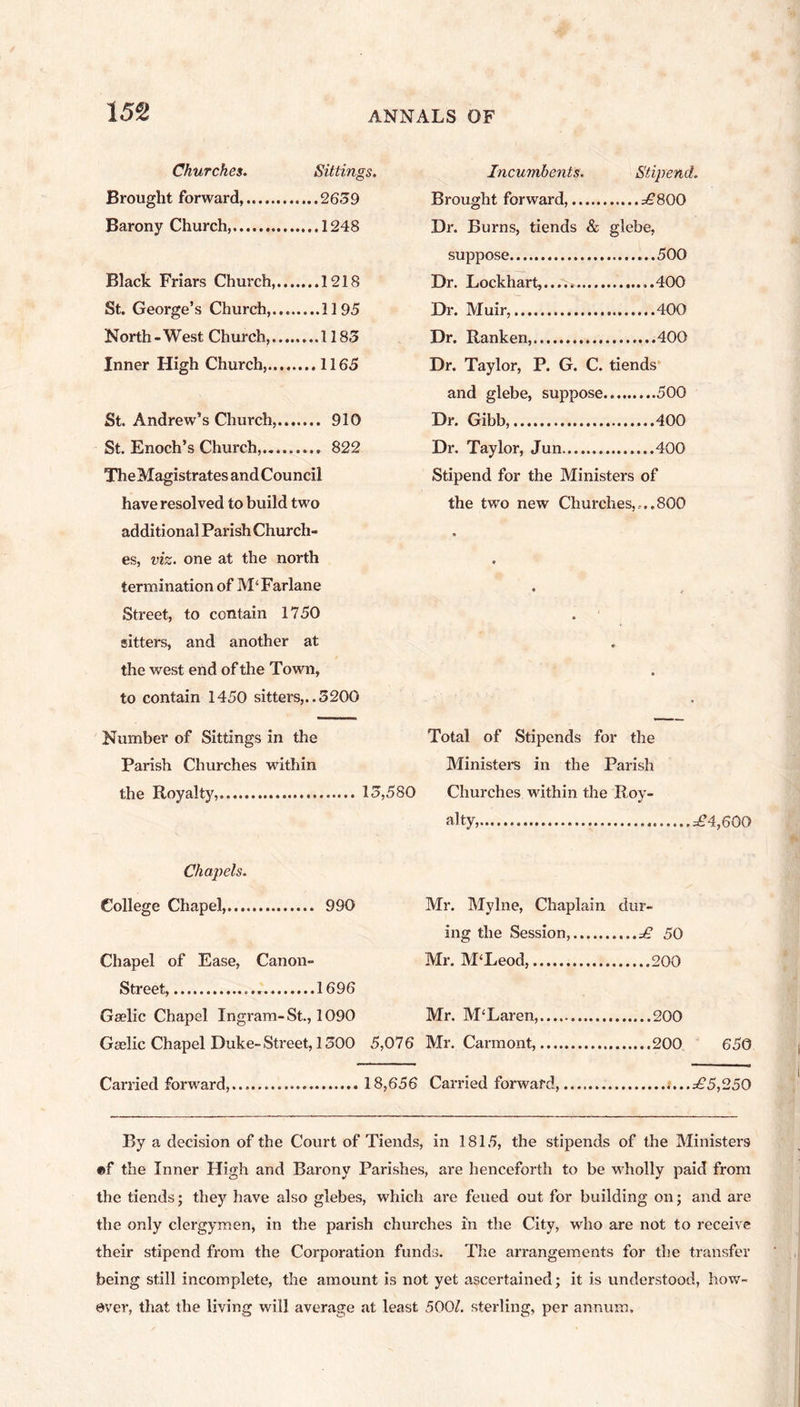 152 ANNALS OF
Churches. Sittings. Incumbents. Stipend.
Brought forward,.............2639 Brought forward,............£800
Barony Church,...............1248 Dr. Burns, tiends & glebe,
suppose........................500
Black Friars Church,.......1218 Dr. Lockhart,...................400
St. George's Church,........1195 Dr. Muir,........................400
North-West Church,........1183 Dr. Ranken,.....................400
Inner High Church,........1165 Dr. Taylor, P. G. C. tiends
and glebe, suppose.........500
St. Andrew's Church,....... 910 Dr. Gibb,........................400
St. Enoch's Church,......... 822 Dr. Taylor, Jun...............400
The Magistrates and Council Stipend for the Ministers of
have resolved to build two the two new Churches,...800
additional Parish Church-
es, viz. one at the north
termination of M‘Farlane
Street, to contain 1750
sitters, and another at
the west end of the Town,
to contain 1450 sitters,..3200
Number of Sittings in the Total of Stipends for the
Parish Churches within Ministers in the Parish
the Royalty,........................ 13,580 Churches within the Roy-
alty,.......................................£4,600
Chapels.
College Chapel,............... 990 Mr. Mylne, Chaplain dur-
ing the Session,...........£ 50
Chapel of Ease, Canon- Mr. M‘Leod,....................200
Street,.........................1696
Gælic Chapel Ingram-St., 1090 Mr. M‘Laren,...................200
Gælic Chapel Duke-Street, 1300 5,076 Mr. Carmont,....................200 650
Carried forward,...................... 18,656 Carried forward,.........................£5,250
By a decision of the Court of Tiends, in 1815, the stipends of the Ministers
of the Inner High and Barony Parishes, are henceforth to be wholly paid from
the tiends; they have also glebes, which are feued out for building on; and are
the only clergymen, in the parish churches in the City, who are not to receive
their stipend from the Corporation funds. The arrangements for the transfer
being still incomplete, the amount is not yet ascertained; it is understood, how-
ever, that the living will average at least 500l. sterling, per annum.